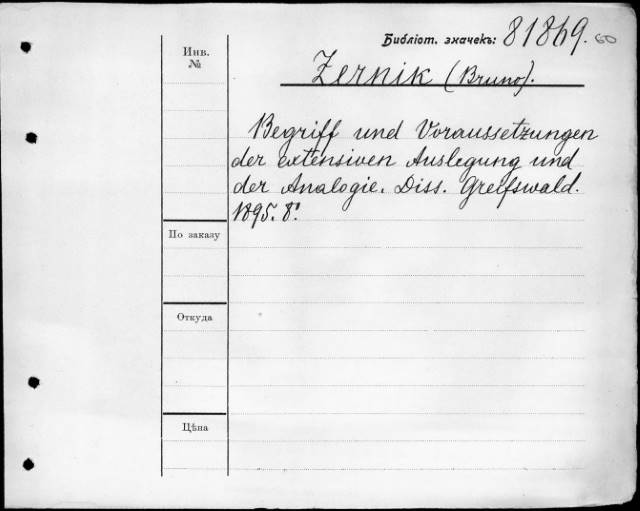 Библіот. значекъ: 81869. 60
Инв.
№
Zernik (Bruno).
Begriff und Voraussetzungen
der extensiven Auslegung und
der Analogie. Diss. Greifswald.
1895. 8°.
По заказу
Откуда
Цѣна